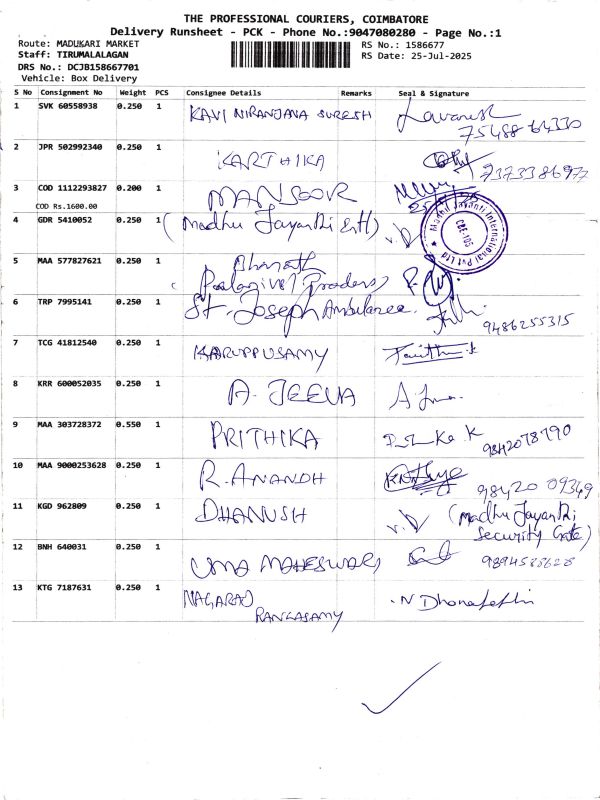 THE PROFESSIONAL COURIERS, COIMBATORE
Delivery Runsheet - PCK - Phone No.:9047080280 - Page No.:1
Route: MADUKARI MARKET
RS No.: 1586677
Staff: TIRUMALALAGAN
RS Date: 25-Jul-2025
DRS No.: DCJB158667701
Vehicle: Box Delivery
S No Consignment No Weight PCS Consignee Details Remarks Seal & Signature
1 SVK 60558938 0.250 1 KAVI NIRANJANA SURESH
75488 64330
2 JPR 502992340 0.250 1 KARTHIKA 7373386977
3 COD 1112293827 0.200 1 MANSOOR
COD Rs.1600.00
4 GDR 5410052 0.250 1 (Madhu Jayanthi Intl) V.D
Madhu Jayanti International Pvt Ltd
CBE-105
5 MAA 577827621 0.250 1 Bharath
(Palanivel Traders)
6 TRP 7995141 0.250 1 St. Joseph Ambulance.
9486255315
7 TCG 41812540 0.250 1 KARUPPUSAMY
8 KRR 600052035 0.250 1 A. JEEVA
9 MAA 303728372 0.550 1 PRITHIKA
9842078790
10 MAA 9000253628 0.250 1 R. ANANDH
98420 09349
11 KGD 962809 0.250 1 DHANUSH V.D (Madhu Jayanthi
Security Gate)
12 BNH 640031 0.250 1 UMA MAHESWARI 9894585628
13 KTG 7187631 0.250 1 NAGARAJ
RANGASAMY